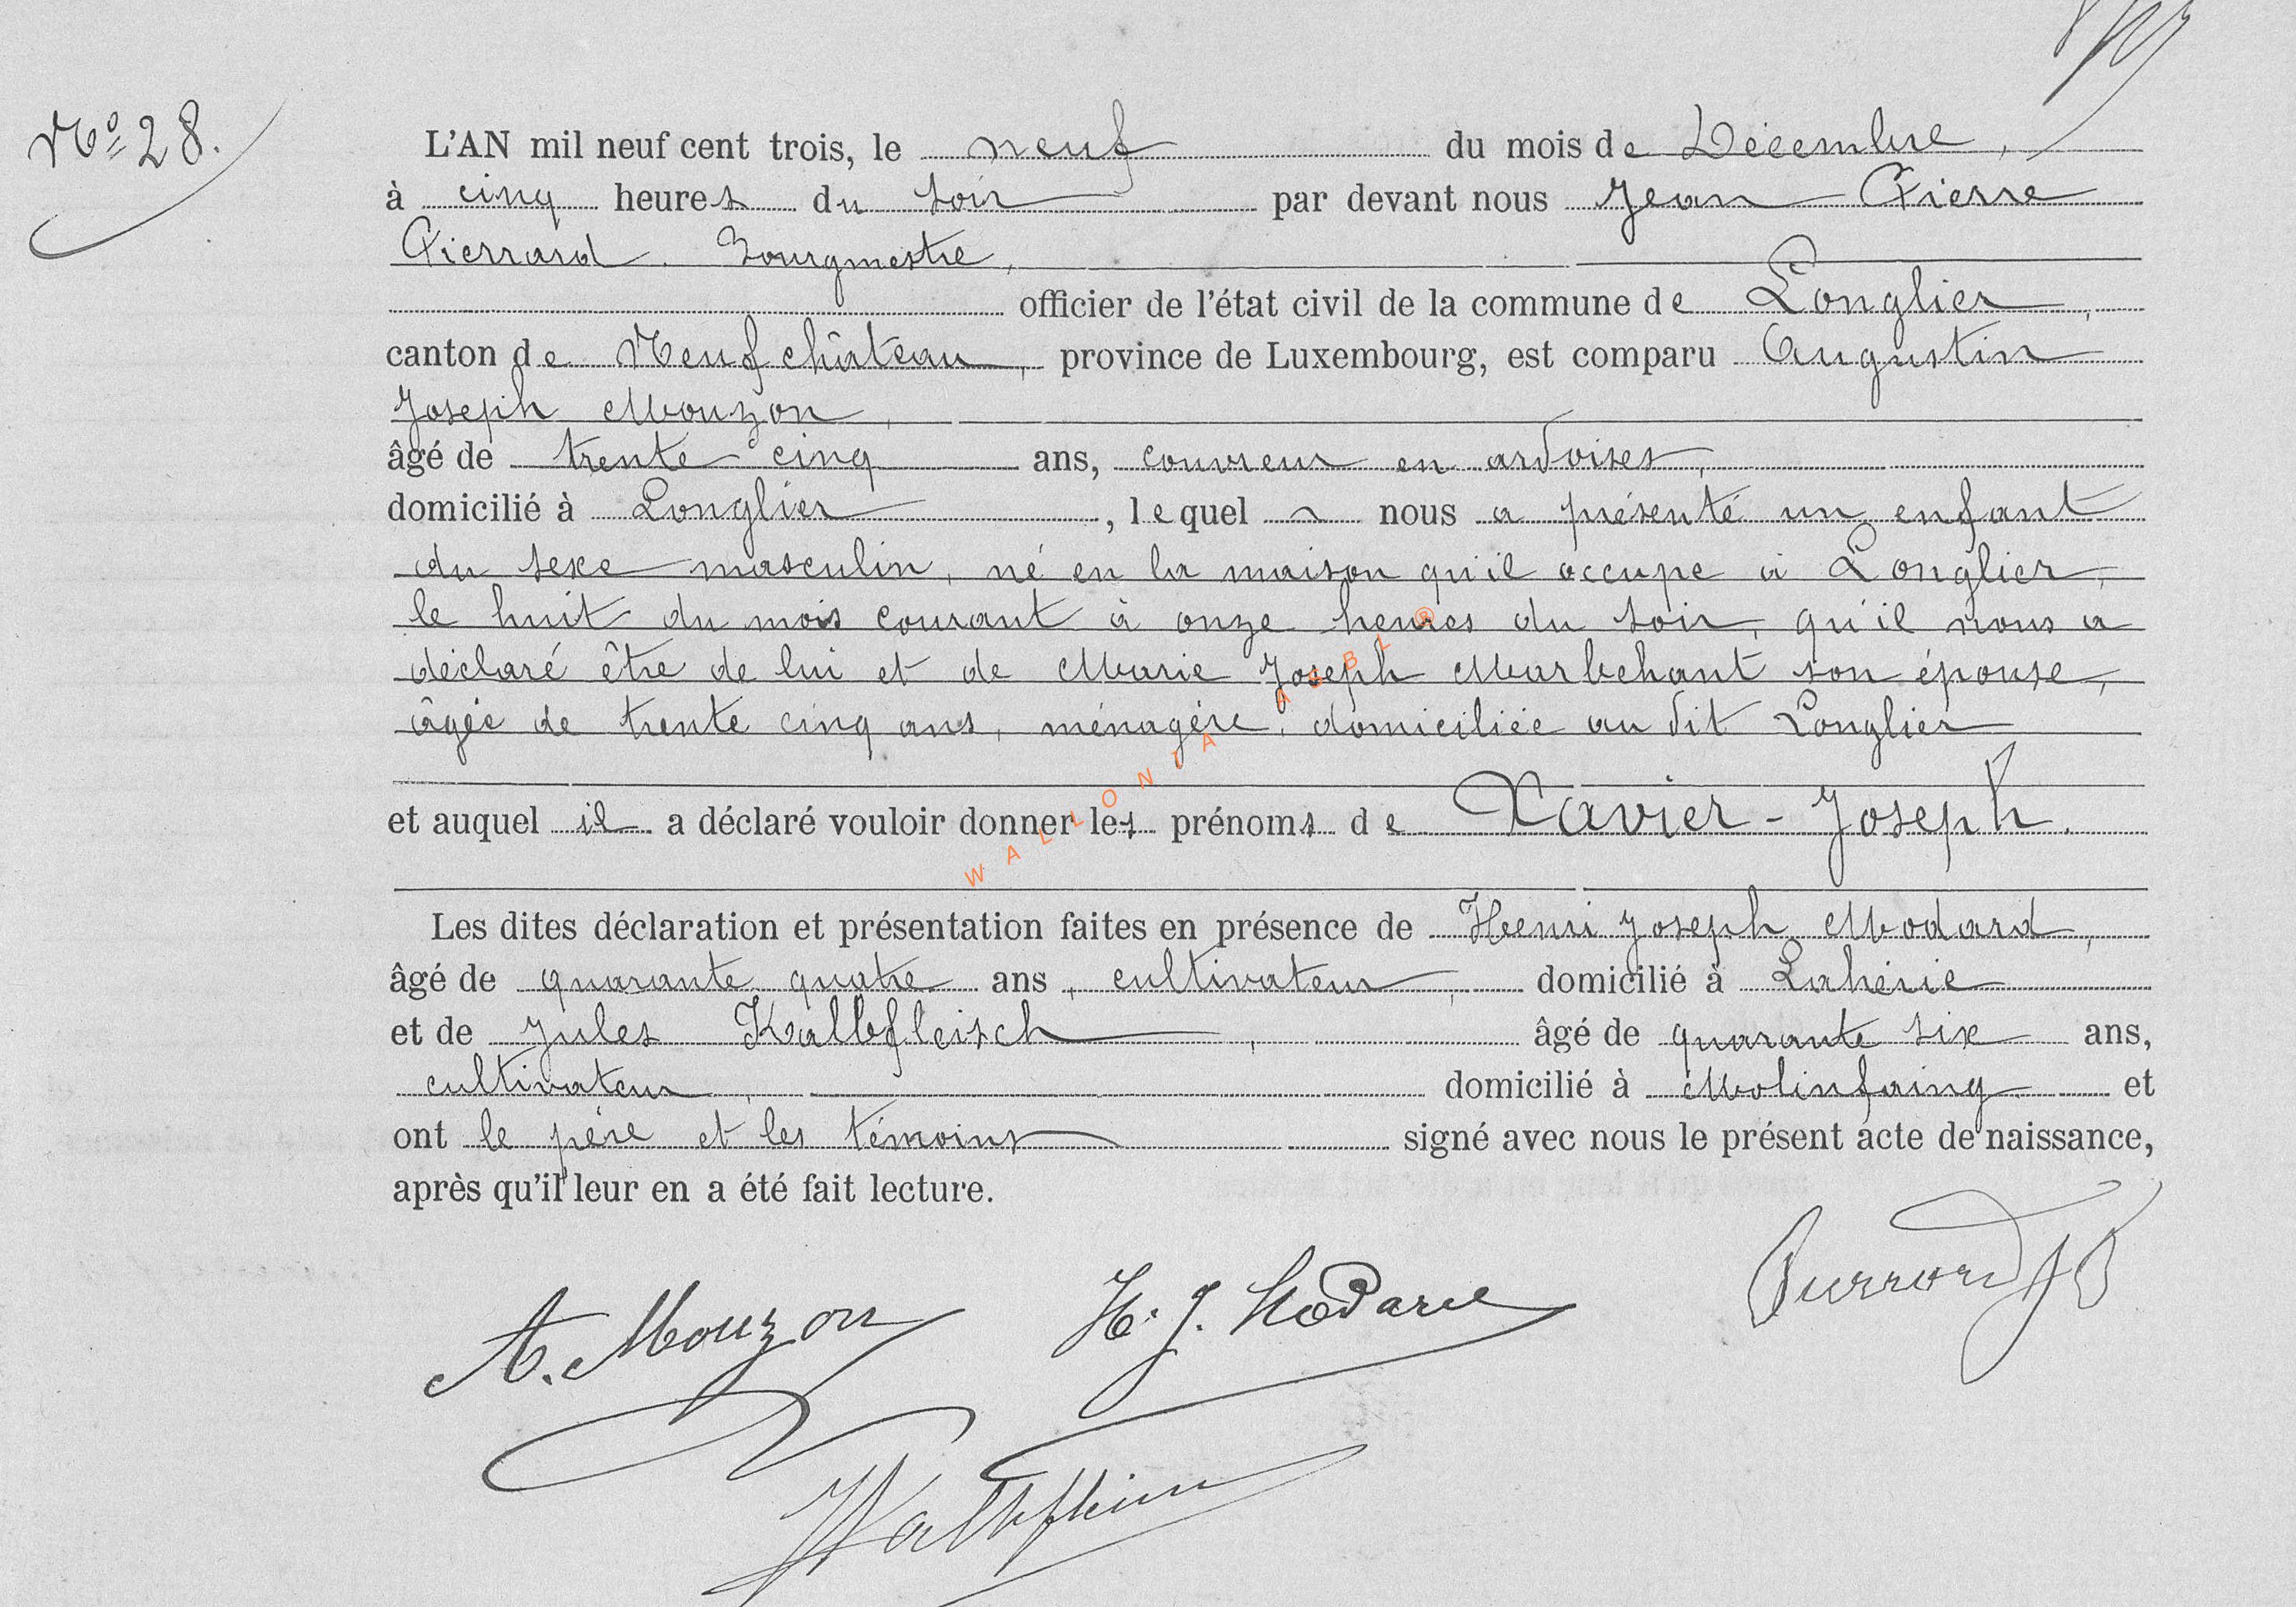 No 28.
L'AN mil neuf cent trois, le neuf du mois de Décembre,
à cinq heures du soir par devant nous Jean Pierre
Pierrard. Bourgmestre,
officier de l'état civil de la commune de Longlier,
canton de Neufchâteau, province de Luxembourg, est comparu Augustin
Joseph Mouzon,
âgé de trente cinq ans, couvreur en ardoises,
domicilié à Longlier, lequel nous a présenté un enfant
du sexe masculin, né en la maison qu'il occupe à Longlier,
le huit du mois courant à onze heures du soir, qu'il nous a
déclaré être de lui et de Marie Joseph Marbehant son épouse,
âgée de trente cinq ans, ménagère, domiciliée au dit Longlier
et auquel il a déclaré vouloir donner les prénoms de Xavier-Joseph.
Les dites déclaration et présentation faites en présence de Henri Joseph Modard,
âgé de quarante quatre ans, cultivateur, domicilié à Lahérie
et de Jules Kalbfleisch, âgé de quarante six ans,
cultivateur, domicilié à Molinfaing et
ont le père et les témoins signé avec nous le présent acte de naissance,
après qu'il leur en a été fait lecture.
A. Mouzon H. J. Modard Pierrard JP
WALLONIA ASBL ®